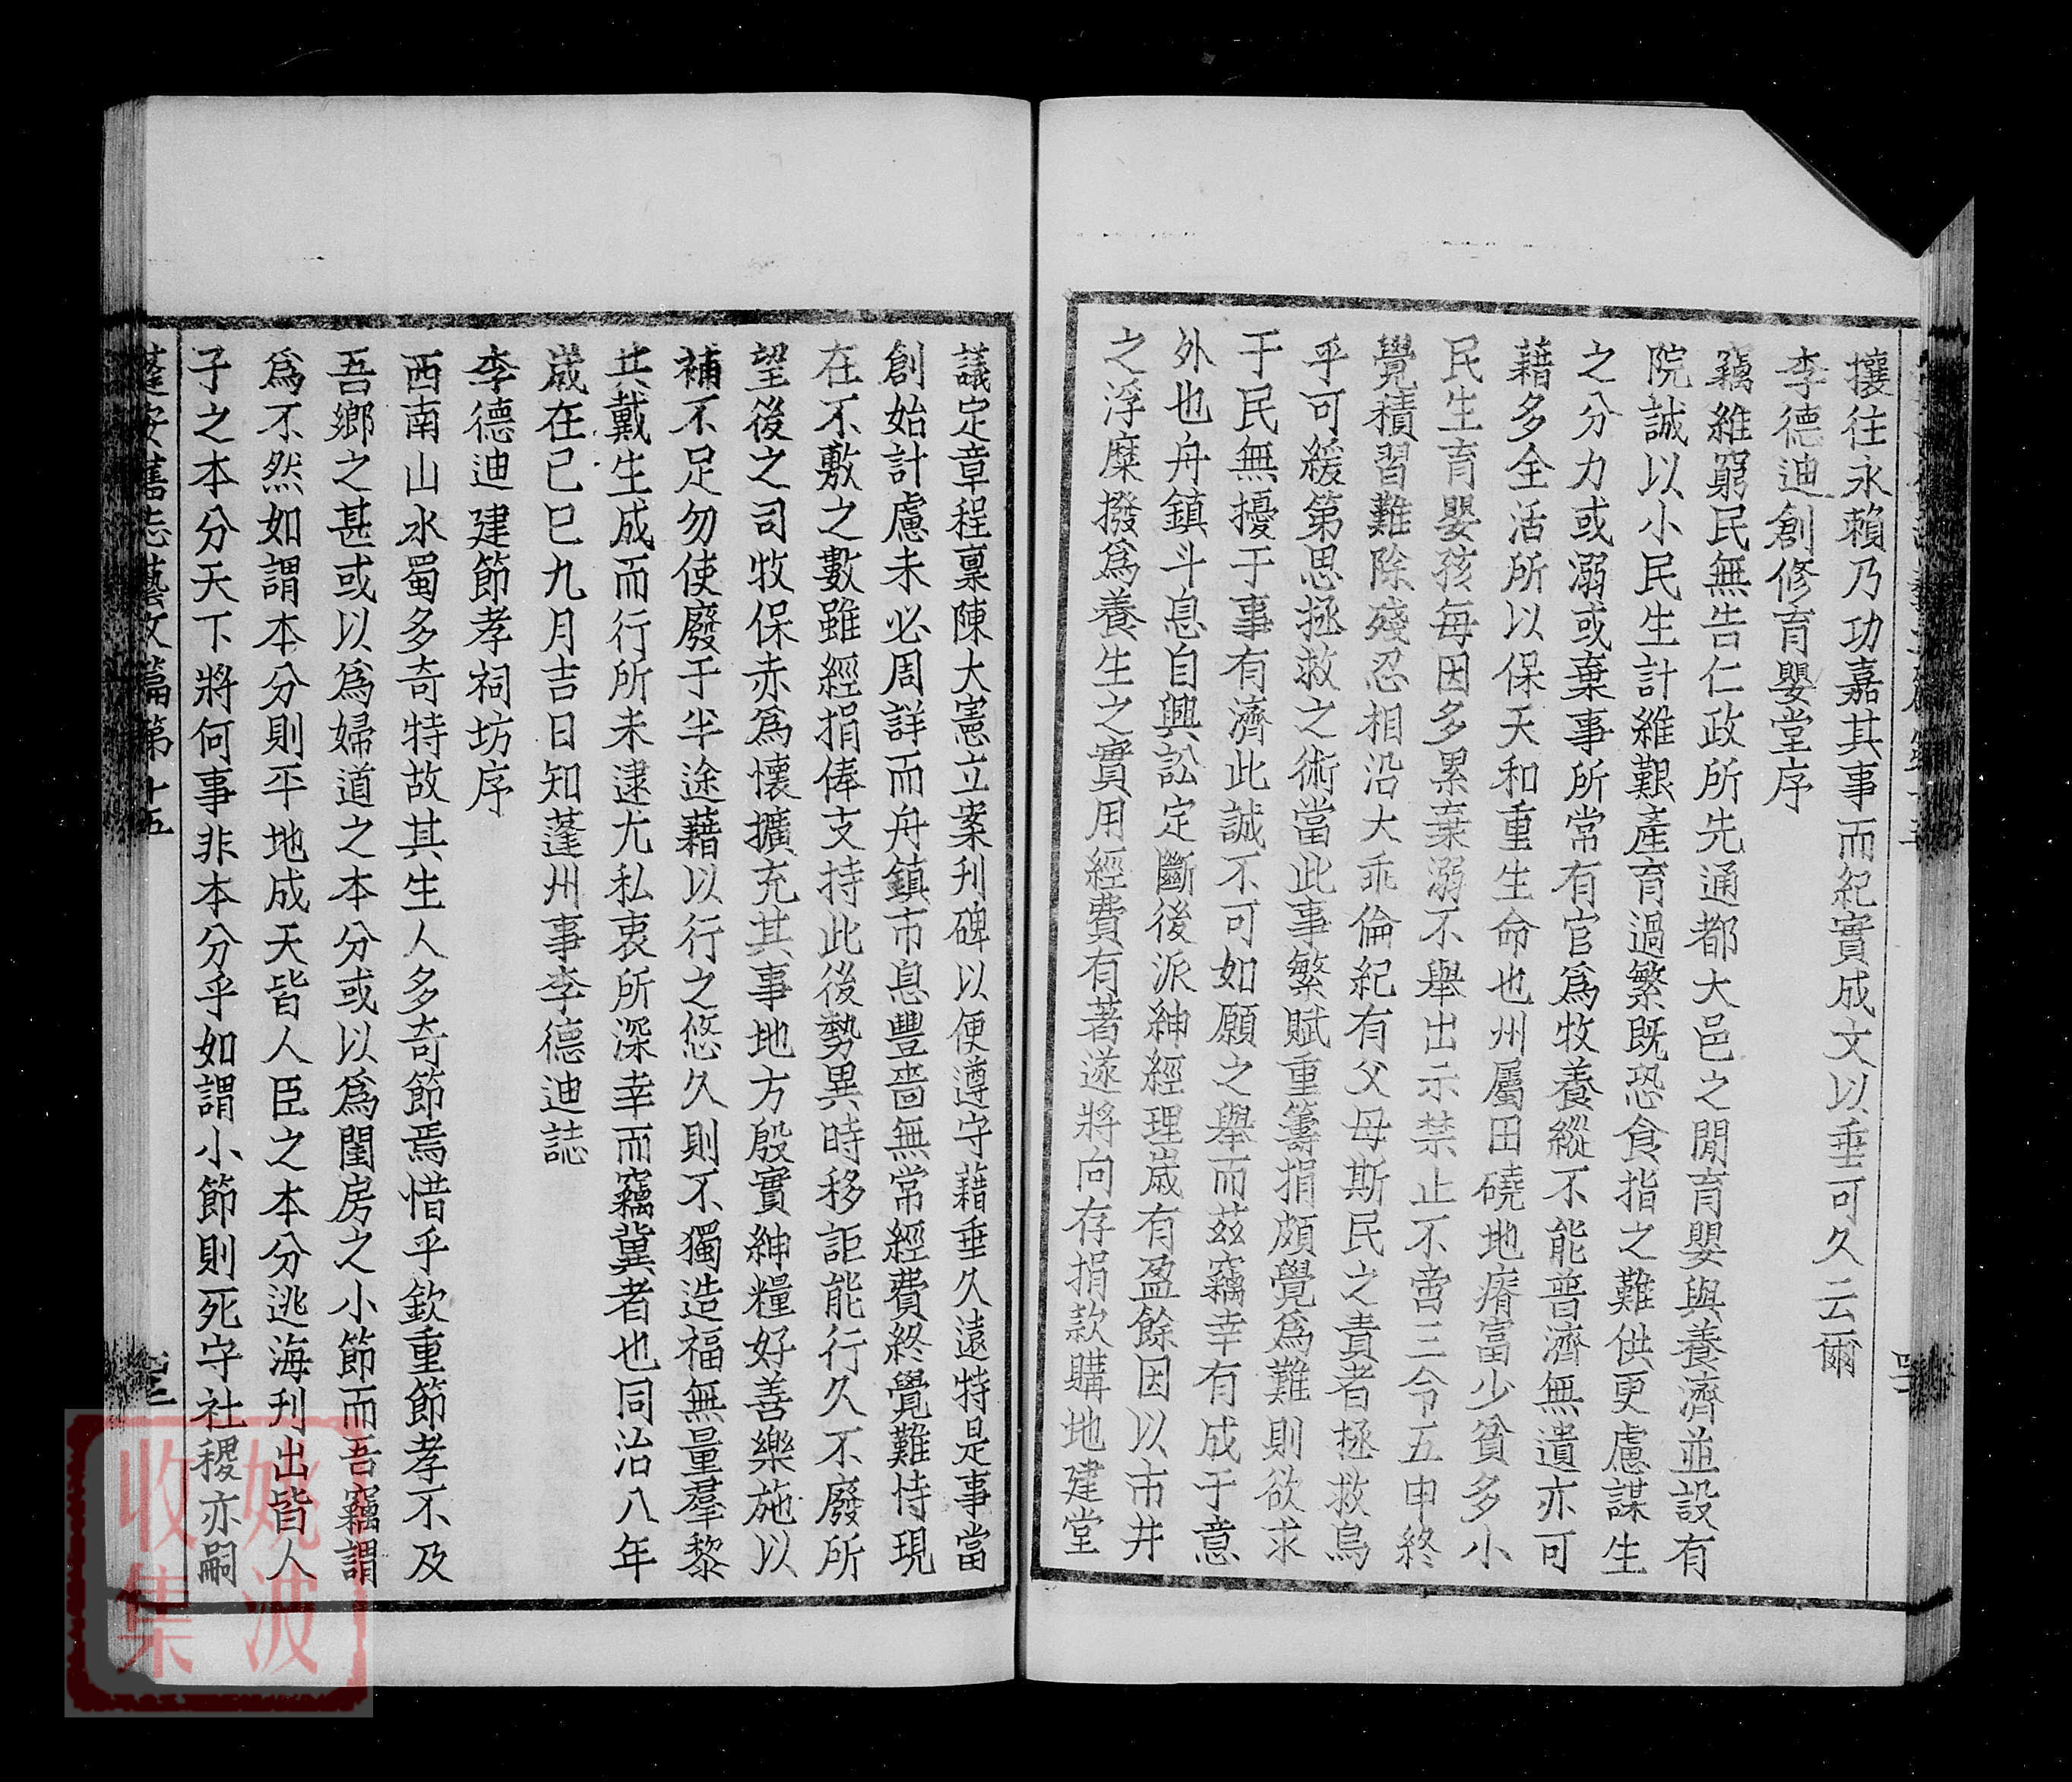 攘往永賴乃功嘉其事而紀實成文以垂可久云爾
李德迪創修育嬰堂序
竊維窮民無告仁政所先通都大邑之間育嬰與養濟並設有
院誠以小民生計維艱產育過繁既恐食指之難供更慮謀生
之分力或溺或棄事所常有官爲牧養縱不能普濟無遺亦可
藉多全活所以保天和重生命也州屬田磽地瘠富少貧多小
民生育嬰孩每因多累棄溺不舉出示禁止不啻三令五申終
覺積習難除殘忍相沿大乖倫紀有父母斯民之責者拯救烏
乎可緩第思拯救之術當此事繁賦重籌捐頗覺爲難則欲求
于民無擾于事有濟此誠不可如願之舉而茲竊幸有成于意
外也舟鎮斗息自興訟定斷後派紳經理歲有盈餘因以市井
之浮糜撥爲養生之實用經費有著遂將向存捐款購地建堂
議定章程稟陳大憲立案刋碑以便遵守藉垂久遠特是事當
創始計慮未必周詳而舟鎮市息豐嗇無常經費終覺難恃現
在不敷之數雖經捐俸支持此後勢異時移詎能行久不廢所
望後之司牧保赤爲懷擴充其事地方殷實紳糧好善樂施以
補不足勿使廢于半途藉以行之悠久則不獨造福無量羣黎
共戴生成而行所未逮尤私衷所深幸而竊冀者也同治八年
歲在己巳九月吉日知蓬州事李德迪誌
李德迪建節孝祠坊序
西南山水蜀多奇特故其生人多奇節焉惜乎欽重節孝不及
吾鄉之甚或以爲婦道之本分或以爲閨房之小節而吾竊謂
爲不然如謂本分則平地成天皆人臣之本分逃海刋出皆人
子之本分天下將何事非本分乎如謂小節則死守社稷亦嗣
蓬安舊志藝文篇第十五
姚波
收集